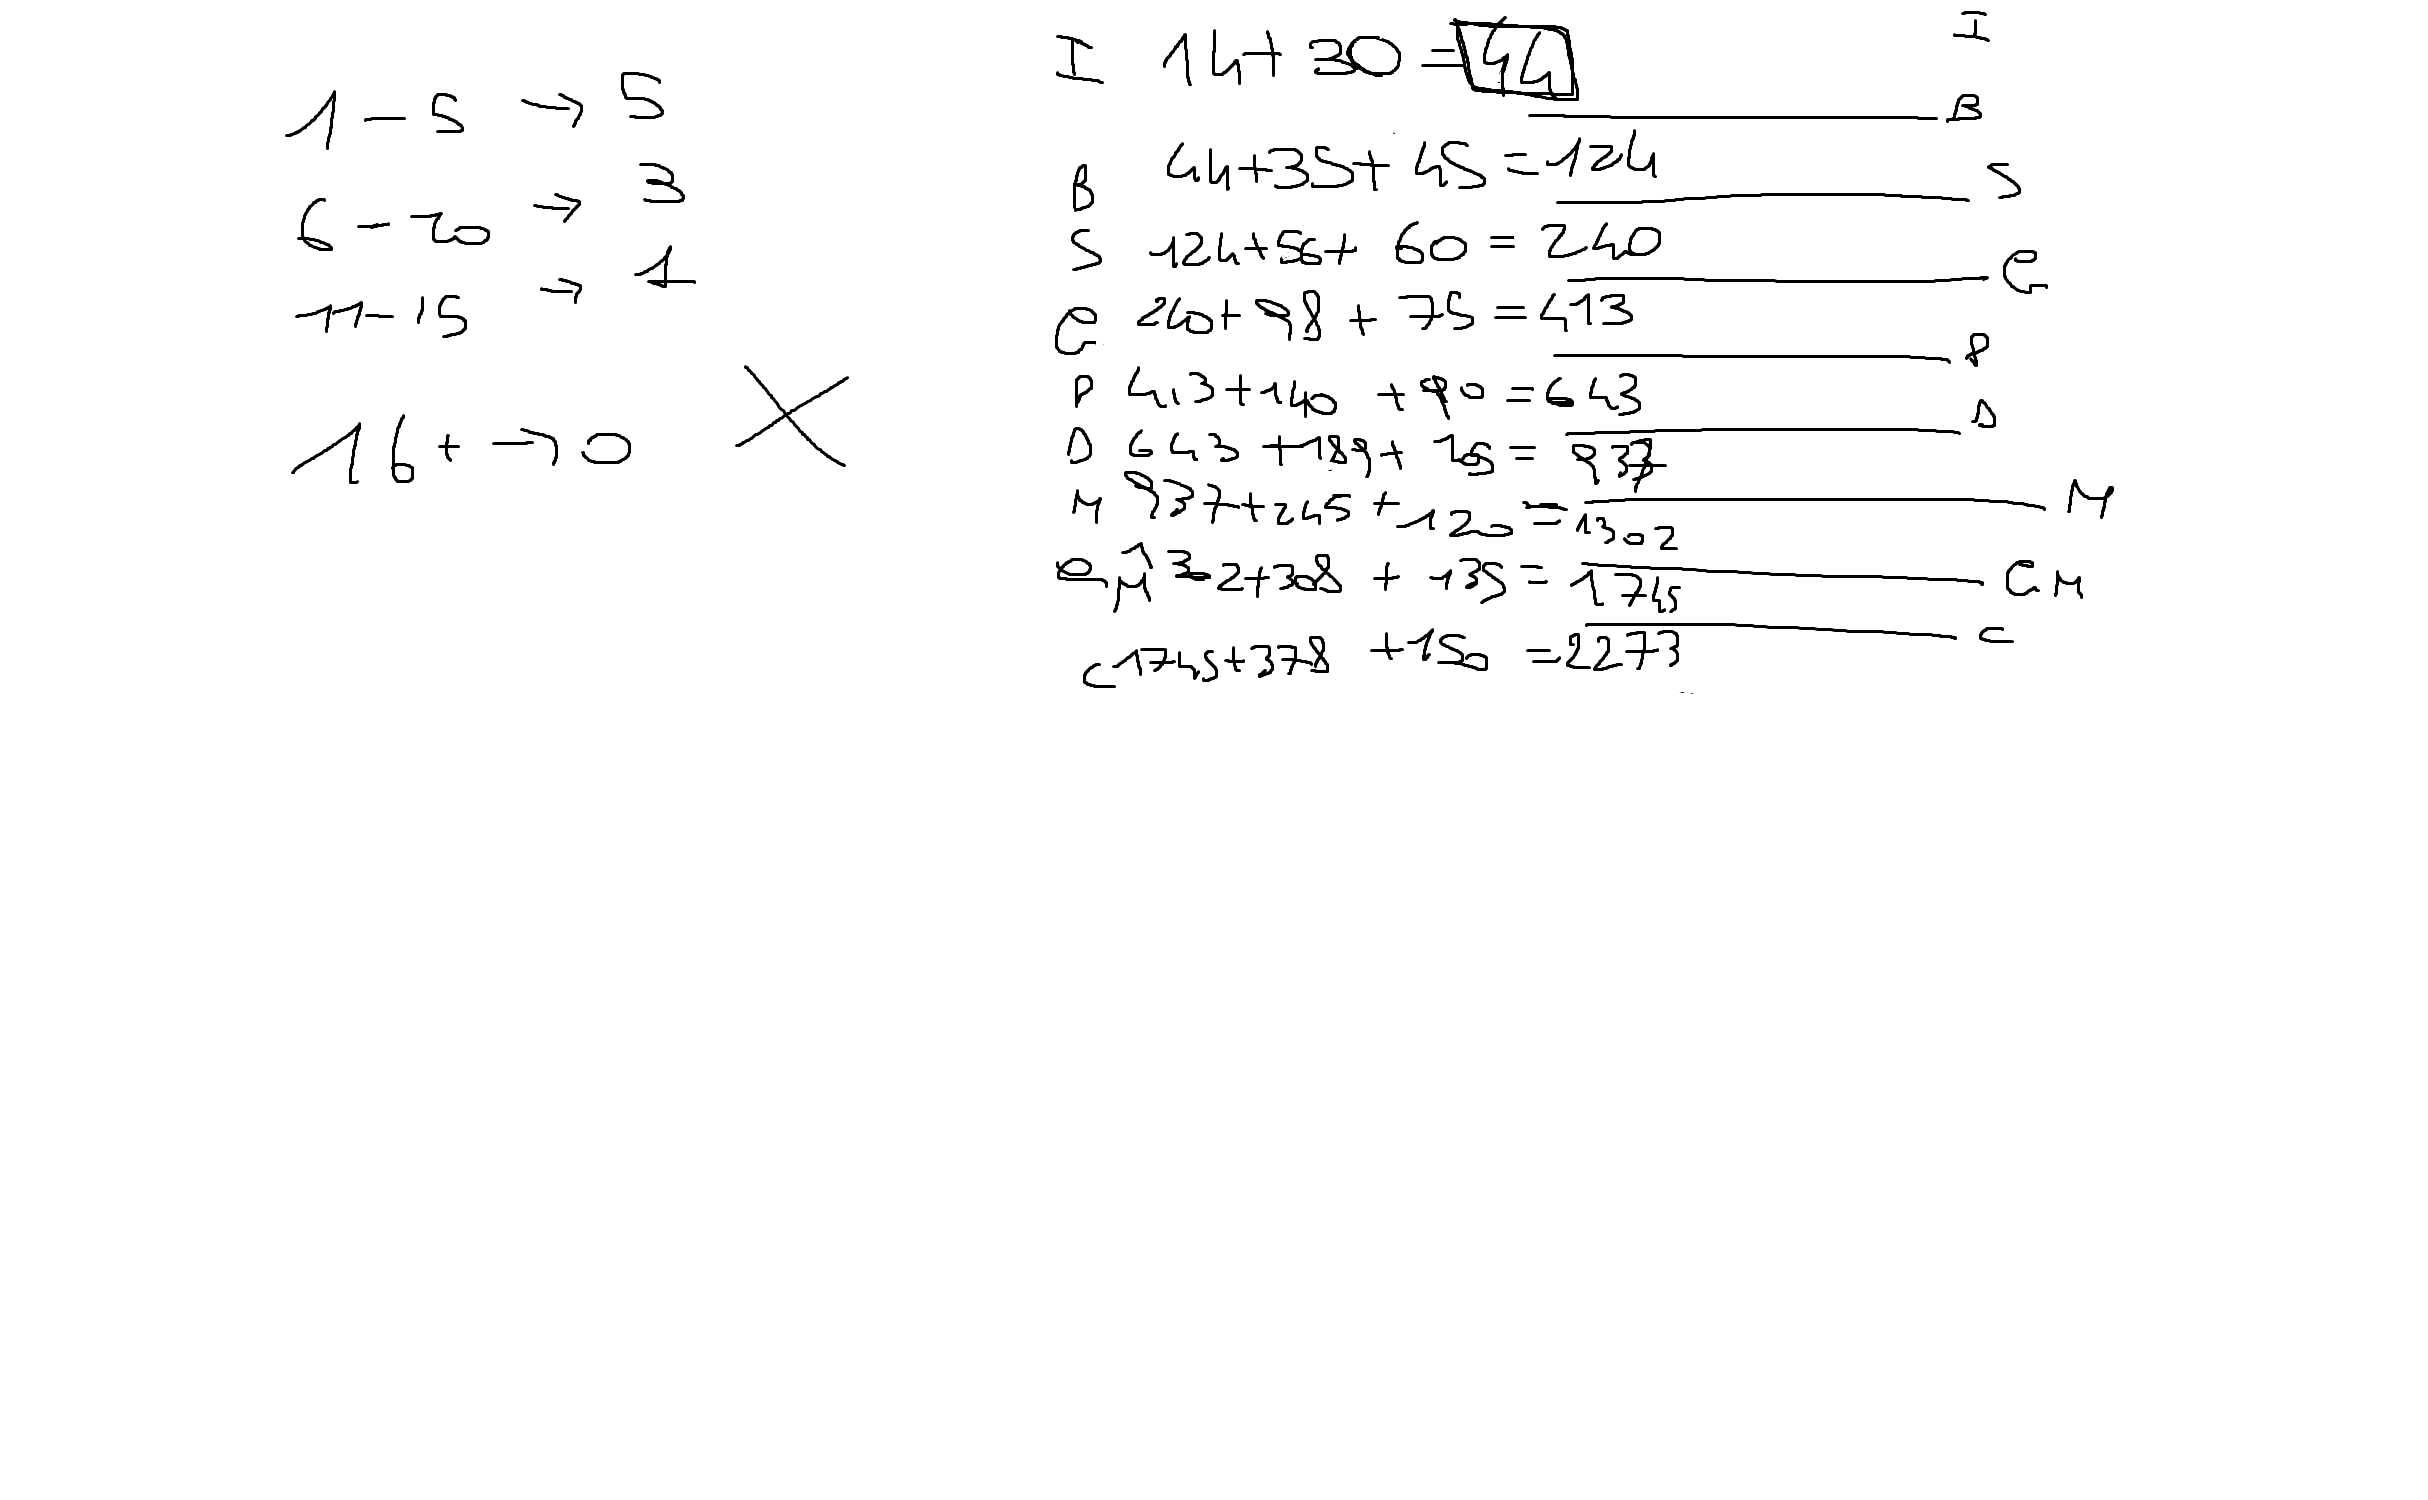 1 - 5 → 5
6 - 10 → 3
11 - 15 → 1
16 + → 0
I 14 + 30 = 44
I
B
B 44 + 35 + 45 = 124
S
S 124 + 56 + 60 = 240
G
G 240 + 98 + 75 = 413
P
P 413 + 140 + 90 = 643
D
D 643 + 189 + 105 = 937
M
M 937 + 245 + 120 = 1302
GM
GM 1302 + 308 + 135 = 1745
C
C 1745 + 378 + 150 = 2273